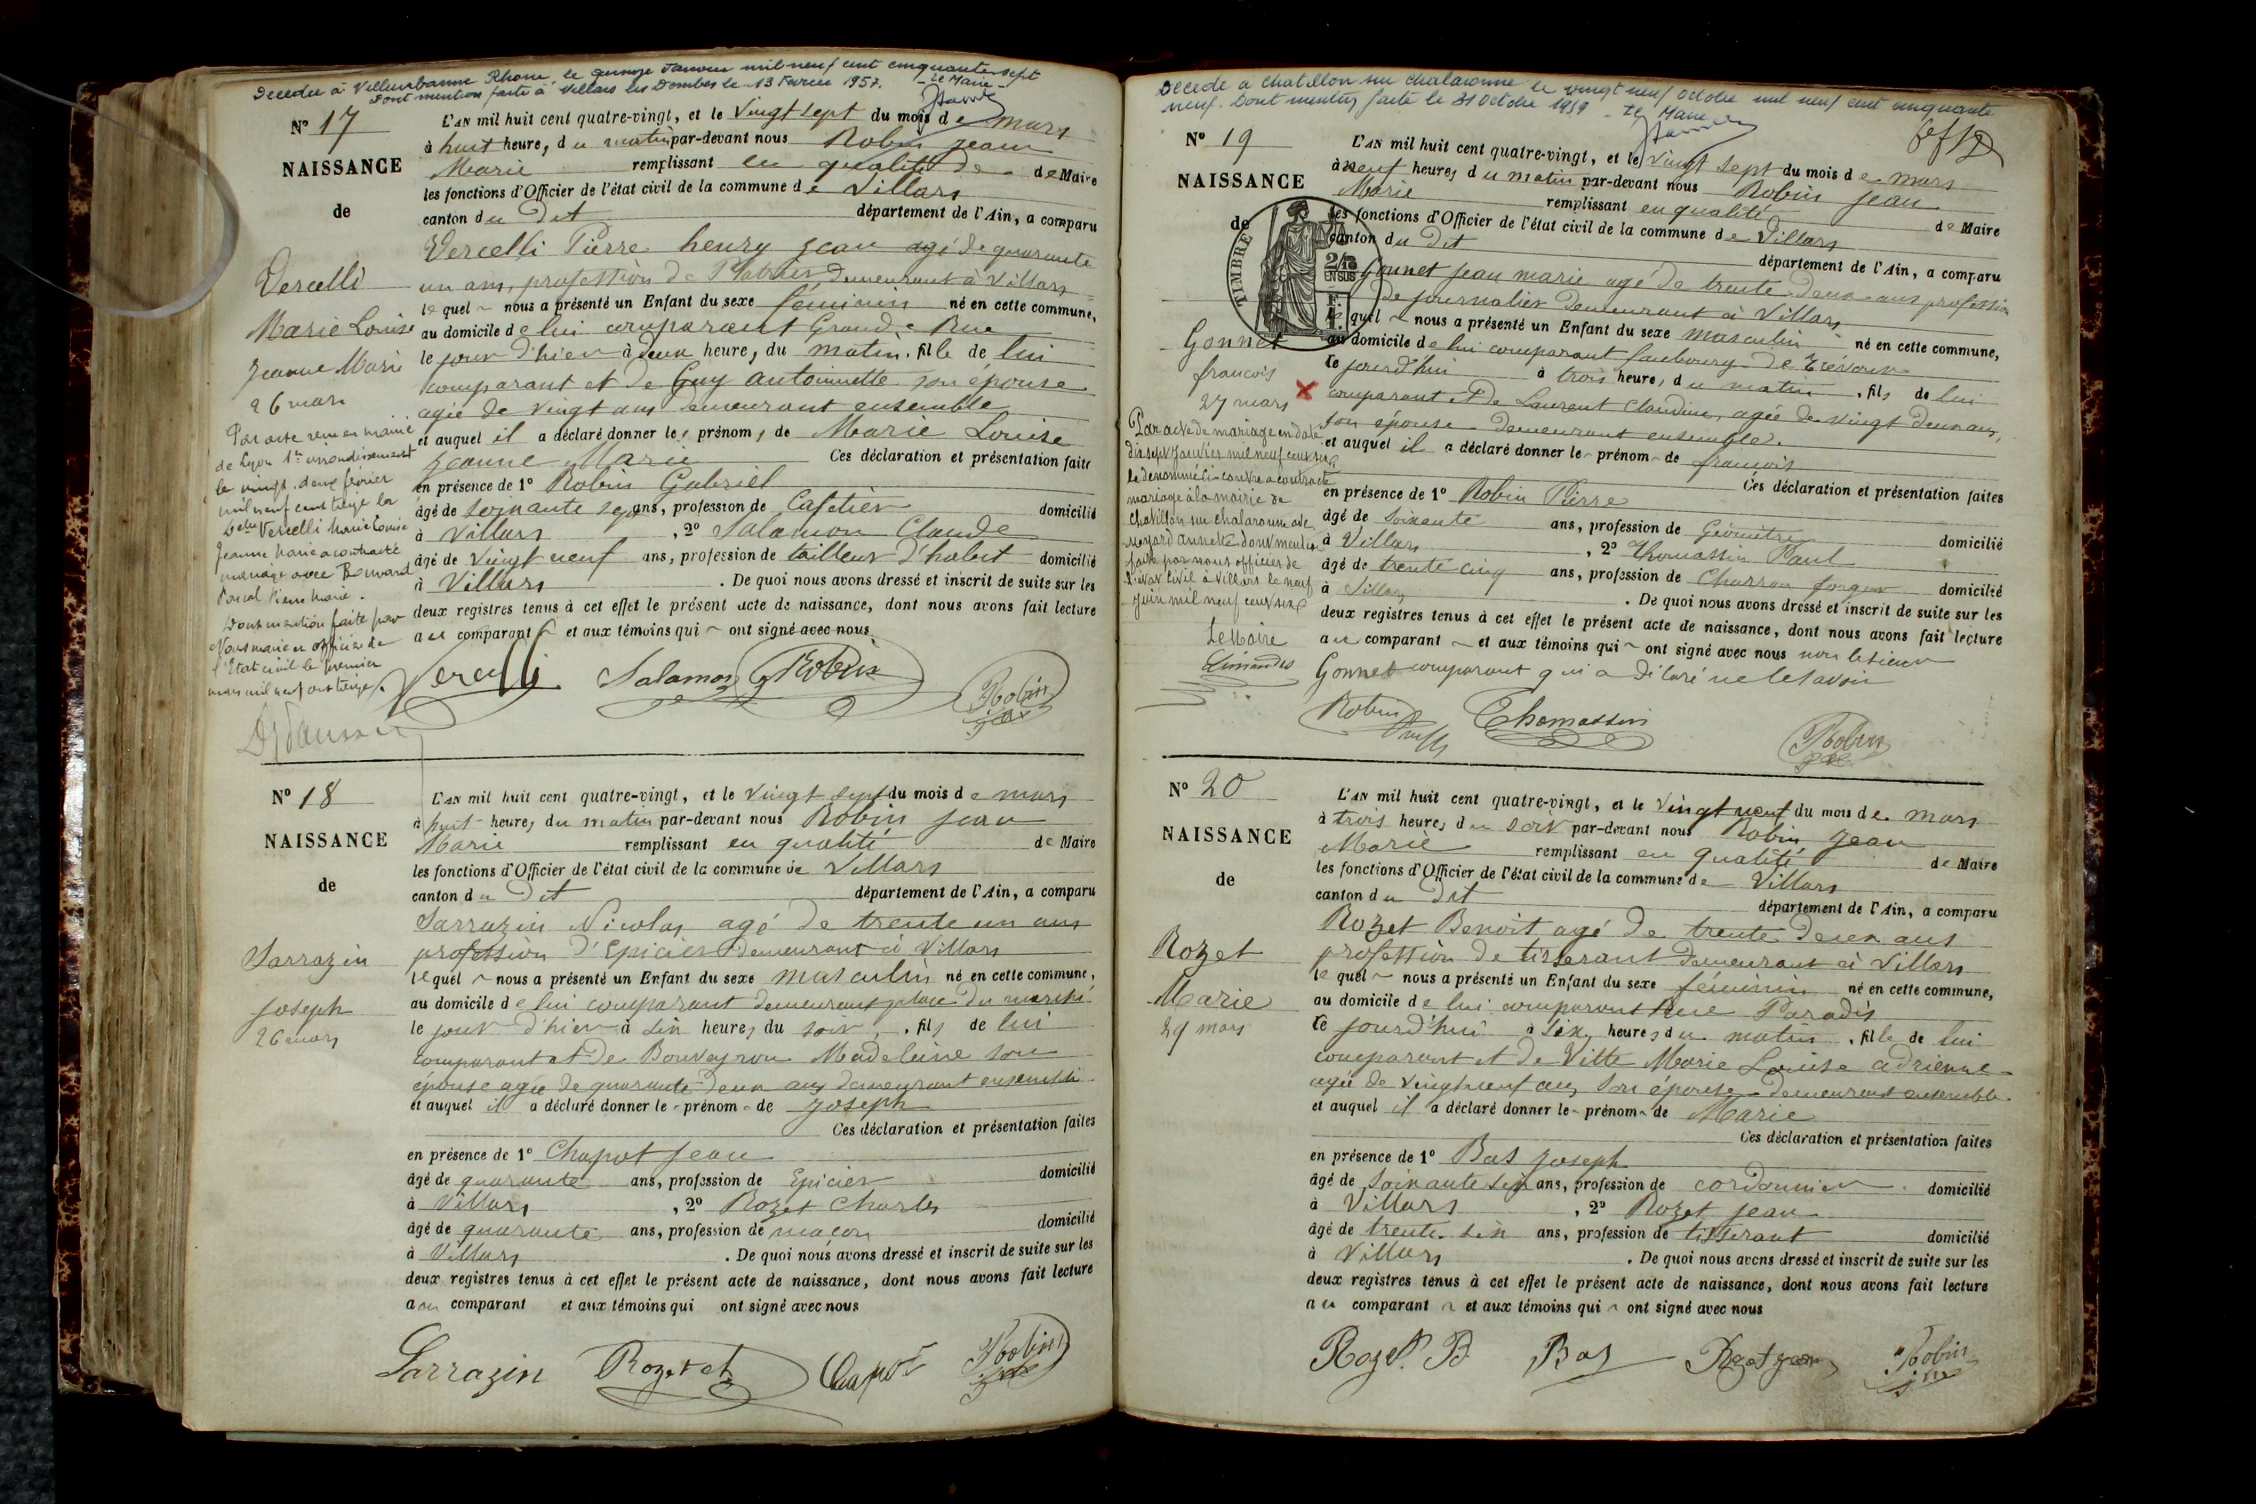 Decedee à Villeurbanne Rhone, le quinze Janvier mil neuf cent cinquante sept
Dont mention faite à Villars les Dombes le 13 Fevrier 1957. Le Maire
N° 17
NAISSANCE
de
Vercelli
Marie Louise
Jeanne Marie
26 mars
Par acte reçu en mairie
de Lyon 1er arrondissement
le vingt deux février
mil neuf cent treize la
Delle Vercelli Marie Louise
Jeanne Marie a contracté
mariage avec Bernard
Pascal Pierre Marie.
Dont mention faite par
Nous maire officier de
l'Etat civil le premier
mars mil neuf cent treize.
L'AN mil huit cent quatre-vingt, et le vingt sept du mois de mars
à huit heure, du matin par-devant nous Robin Jean
Marie remplissant en qualité de de Maire
les fonctions d'Officier de l'état civil de la commune de Villars
canton du Dit département de l'Ain, a comparu
Vercelli Pierre henry Jean agé de quarante
un ans, profession de Platrier demeurant à Villars
lequel nous a présenté un Enfant du sexe féminin né en cette commune,
au domicile de lui comparant Grande Rue
le jour d'hier à deux heure, du matin. fille de lui
comparant et de Guy antoinnette son épouse
agée de vingt ans demeurant ensemble
et auquel il a déclaré donner les prénoms de Marie Louise
Jeanne Marie Ces déclaration et présentation faites
en présence de 1° Robin Gabriel
âgé de soixante sept ans, profession de Cafetier domicilié
à Villars , 2° Salamon Claude
âgé de vingt neuf ans, profession de tailleur d'habit domicilié
à Villars . De quoi nous avons dressé et inscrit de suite sur les
deux registres tenus à cet effet le présent acte de naissance, dont nous avons fait lecture
au comparant et aux témoins qui ont signé avec nous.
Vercelli Salamon G Robin Robin
N° 18
NAISSANCE
de
Sarrazin
Joseph
26 mars
L'AN mil huit cent quatre-vingt, et le vingt sept du mois de mars
à huit heures, du matin par-devant nous Robin Jean
Marie remplissant en qualité de Maire
les fonctions d'Officier de l'état civil de la commune de Villars
canton du Dit département de l'Ain, a comparu
Sarrazin Nicolas agé de trente un ans
profession d'Epicier demeurant à Villars
lequel nous a présenté un Enfant du sexe masculin né en cette commune,
au domicile de lui comparant demeurant place du marché
le jour d'hier à six heures du soir, . fils de lui
comparant et de Bouveyron Madeleine son
épouse agée de quarante deux ans demeurant ensemble
et auquel il a déclaré donner le prénom de Joseph
Ces déclaration et présentation faites
en présence de 1° Chapot Jean
âgé de quarante ans, profession de Epicier domicilié
à Villars , 2° Rozet Charles
âgé de quarante ans, profession de maçon domicilié
à Villars . De quoi nous avons dressé et inscrit de suite sur les
deux registres tenus à cet effet le présent acte de naissance, dont nous avons fait lecture
au comparant et aux témoins qui ont signé avec nous
Sarrazin Rozet ch Chapot Robin
Décédé à Chatillon sur Chalaronne le vingt neuf octobre mil neuf cent cinquante
neuf. Dont mention faite le 31 Octobre 1959 - Le Maire
N° 19
NAISSANCE
de
TIMBRE
2/10
EN SUS
Gonnet
françois
27 mars
Par acte de mariage en date
dix sept Janvier mil neuf cent
le dénommé ci-contre a contracté
mariage à la mairie de
Chatillon sur Chalaronne avec
annette dont mention
faite par nous officier de
l'état civil à Villars le neuf
Juin mil neuf cent
Le Maire
L'AN mil huit cent quatre-vingt, et le vingt sept du mois de mars
à neuf heures, du matin par-devant nous Robin Jean
Marie remplissant en qualité de Maire
les fonctions d'Officier de l'état civil de la commune de Villars
canton du Dit département de l'Ain, a comparu
Gonnet Jean marie agé de trente deux ans profession
de journalier demeurant à Villars
lequel nous a présenté un Enfant du sexe masculin né en cette commune,
au domicile de lui comparant faubourg de Trévoux
le jourd'hui à trois heure, du matin . fils de lui
comparant et de Laurent Claudine, agée de vingt deux ans,
son épouse demeurant ensemble.
et auquel il a déclaré donner le prénom de françois
Ces déclaration et présentation faites
en présence de 1° Robin Pierre
âgé de soixante ans, profession de Géomètre domicilié
à Villars , 2° Thomassin Paul
âgé de trente cinq ans, profession de Charron forgeur domicilié
à Villars . De quoi nous avons dressé et inscrit de suite sur les
deux registres tenus à cet effet le présent acte de naissance, dont nous avons fait lecture
au comparant et aux témoins qui ont signé avec nous non le sieur
Gonnet comparant qui a déclaré ne le savoir
Robin Thomassin Robin
N° 20
NAISSANCE
de
Rozet
Marie
29 mars
L'AN mil huit cent quatre-vingt, et le vingt neuf du mois de mars
à trois heures, du soir par-devant nous Robin Jean
Marie remplissant en qualité de Maire
les fonctions d'Officier de l'état civil de la commune de Villars
canton du Dit département de l'Ain, a comparu
Rozet Benoit agé de trente deux ans
profession de tisserant demeurant à Villars
lequel nous a présenté un Enfant du sexe féminin né en cette commune,
au domicile de lui comparant Rue Paradis
le jourd'hui à six heures du matin . fille de lui
comparant et de Vitte Marie Louise adrienne
agée de vingt neuf ans son épouse demeurant ensemble.
et auquel il a déclaré donner le prénom de Marie
Ces déclaration et présentation faites
en présence de 1° Bas Joseph
âgé de soixante six ans, profession de cordonnier domicilié
à Villars , 2° Rozet Jean
âgé de trente six ans, profession de tisserant domicilié
à Villars . De quoi nous avons dressé et inscrit de suite sur les
deux registres tenus à cet effet le présent acte de naissance, dont nous avons fait lecture
au comparant et aux témoins qui ont signé avec nous
Rozet B Bas Rozet jean Robin